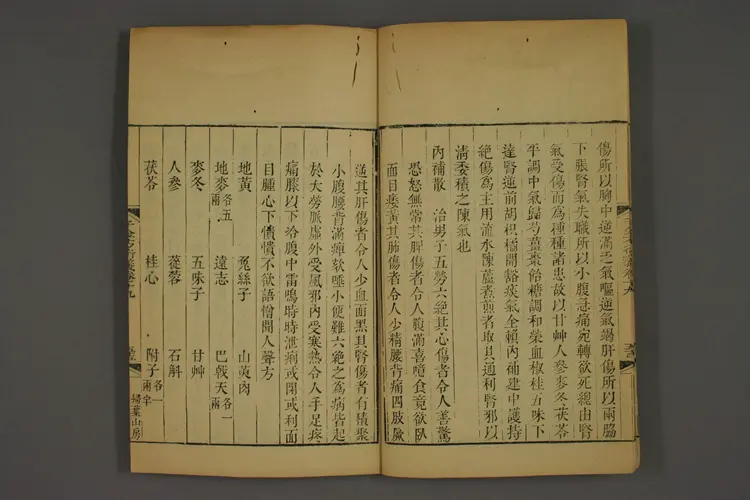 傷所以胸中逆滿之氣嘔逆氣竭肝傷所以兩脇
下脹腎氣失職所以小腹急痛宛轉欲死總由腎
氣受傷而為種種諸患故以甘艸人參麥冬茯苓
平調中氣歸芍薑棗飴糖調和榮血椒桂五味下
達腎逆前胡枳橘開豁痰氣全賴內補建中護持
絕傷為主用流水陳蘆煮煎者取其通利腎邪以
淸委積之陳氣也
內補散 治男子五勞六絕其心傷者令人善驚
恐怒無常其脾傷者令人腹滿喜噫食竟欲臥
面目痿黃其肺傷者令人少精腰背痛四肢厥
逆其肝傷者令人少血面黑其腎傷者有積聚
小腹腰背滿痺欬唾小便難六絕之為病皆起
於大勞脈虛外受風邪內受寒熱令人手足疼
痛膝以下冷腹中雷鳴時時泄痢或閉或利面
目腫心下憒憒不欲語憎聞人聲方
地黃 兔絲子 山萸肉
地麥各五兩 遠志 巴戟天各一兩
麥冬 五味子 甘艸
人參 蓯蓉 石斛
茯苓 桂心 附子各一兩半
千金方衍義卷十九
掃葉山房